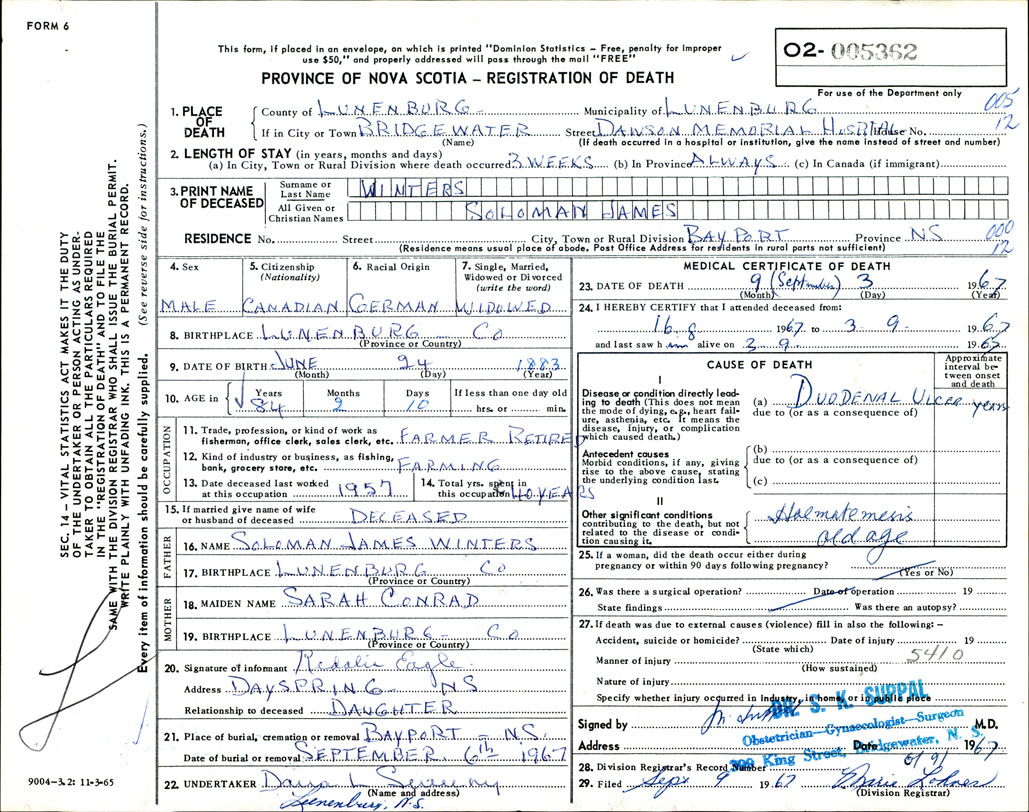 FORM 6
This form, if placed in an envelope, on which is printed "Dominion Statistics – Free, penalty for improper
use $50," and properly addressed will pass through the mail "FREE"
PROVINCE OF NOVA SCOTIA – REGISTRATION OF DEATH
02- 005362
For use of the Department only
005
12
1. PLACE OF DEATH
County of LUNENBURG Municipality of LUNENBURG
If in City or Town BRIDGEWATER Street DAWSON MEMORIAL HOSPITAL House No.
(Name) (If death occurred in a hospital or institution, give the name instead of street and number)
2. LENGTH OF STAY (in years, months and days)
(a) In City, Town or Rural Division where death occurred 3 WEEKS (b) In Province ALWAYS (c) In Canada (if immigrant)
3. PRINT NAME OF DECEASED
Surname or Last Name WINTERS
All Given or Christian Names SOLOMAN JAMES
RESIDENCE No. Street City, Town or Rural Division BAYPORT Province NS
(Residence means usual place of abode. Post Office Address for residents in rural parts not sufficient)
000
12
4. Sex MALE
5. Citizenship (Nationality) CANADIAN
6. Racial Origin GERMAN
7. Single, Married, Widowed or Divorced (write the word) WIDOWED
8. BIRTHPLACE LUNENBURG CO
(Province or County)
9. DATE OF BIRTH JUNE 24 1883
(Month) (Day) (Year)
10. AGE in Years 84 Months 2 Days 10 If less than one day old hrs. or min.
OCCUPATION
11. Trade, profession, or kind of work as
fisherman, office clerk, sales clerk, etc. FARMER RETIRED
12. Kind of industry or business, as fishing,
bank, grocery store, etc. FARMING
13. Date deceased last worked
at this occupation 1957
14. Total yrs. spent in
this occupation 40 YEARS
15. If married give name of wife
or husband of deceased DECEASED
FATHER
16. NAME SOLOMAN JAMES WINTERS
17. BIRTHPLACE LUNENBURG CO
(Province or Country)
MOTHER
18. MAIDEN NAME SARAH CONRAD
19. BIRTHPLACE LUNENBURG CO
(Province or Country)
20. Signature of informant Eagle
Address DAYSPRING NS
Relationship to deceased DAUGHTER
21. Place of burial, cremation or removal BAYPORT NS
Date of burial or removal SEPTEMBER 6th 1967
22. UNDERTAKER L.
(Name and address)
Lunenburg, N.S.
MEDICAL CERTIFICATE OF DEATH
23. DATE OF DEATH 9 (September) 3 1967
(Month) (Day) (Year)
24. I HEREBY CERTIFY that I attended deceased from:
16. 8 1967 to 3 9. 1967
and last saw him alive on 3 9. 1967
CAUSE OF DEATH
Approximate interval between onset and death
I
Disease or condition directly leading to death (This does not mean
the mode of dying, e.g., heart failure, asthenia, etc. It means the
disease, injury, or complication
which caused death.)
(a) DUODENAL ULCER years
due to (or as a consequence of)
Antecedent causes
Morbid conditions, if any, giving
rise to the above cause, stating
the underlying condition last.
(b)
due to (or as a consequence of)
(c)
II
Other significant conditions
contributing to the death, but not
related to the disease or condition causing it.
Haematemesis
old age
25. If a woman, did the death occur either during
pregnancy or within 90 days following pregnancy?
(Yes or No)
26. Was there a surgical operation? Date of operation 19
State findings Was there an autopsy?
27. If death was due to external causes (violence) fill in also the following: –
Accident, suicide or homicide? Date of injury 19
(State which)
5410
Manner of injury
(How sustained)
Nature of injury
Specify whether injury occurred in industry, in home, or in public place
DR. S. K. SUPPAL
Obstetrician–Gynaecologist–Surgeon
King Street, Bridgewater, N. S.
Signed by M.D.
Address Date 1967
28. Division Registrar's Record Number
29. Filed Sept 9 1967 Marie Lohnes
(Division Registrar)
SEC. 14 – VITAL STATISTICS ACT MAKES IT THE DUTY
OF THE UNDERTAKER OR PERSON ACTING AS UNDER-
TAKER TO OBTAIN ALL THE PARTICULARS REQUIRED
IN THE "REGISTRATION OF DEATH" AND TO FILE THE
SAME WITH THE DIVISION REGISTRAR WHO SHALL ISSUE THE BURIAL PERMIT.
WRITE PLAINLY WITH UNFADING INK. THIS IS A PERMANENT RECORD.
Every item of information should be carefully supplied. (See reverse side for instructions.)
9004–3.2: 11-3-65